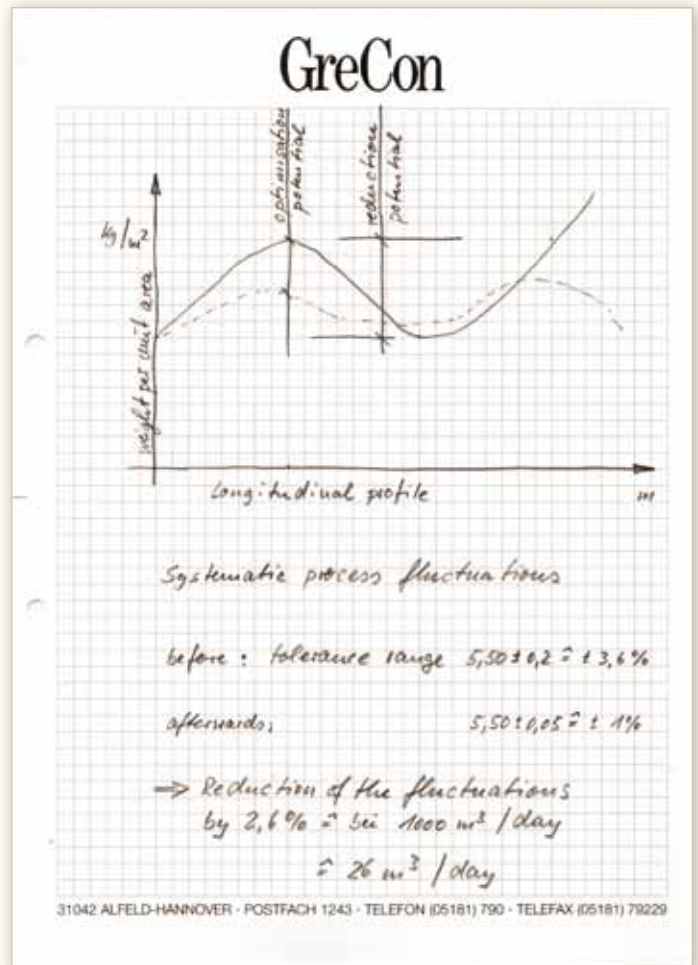 GreCon
optimisation
potential
reduction
potential
kg/m²
weight per unit area
Longitudinal profile
m
Systematic process fluctuations
before : tolerance range 5,50 ± 0,2 ≙ ± 3,6%
afterwards: 5,50 ± 0,05 ≙ ± 1%
⇒ Reduction of the fluctuations
by 2,6% ≙ bei 1000 m³ /day
≙ 26 m³ /day
31042 ALFELD-HANNOVER · POSTFACH 1243 · TELEFON (05181) 790 · TELEFAX (05181) 79229